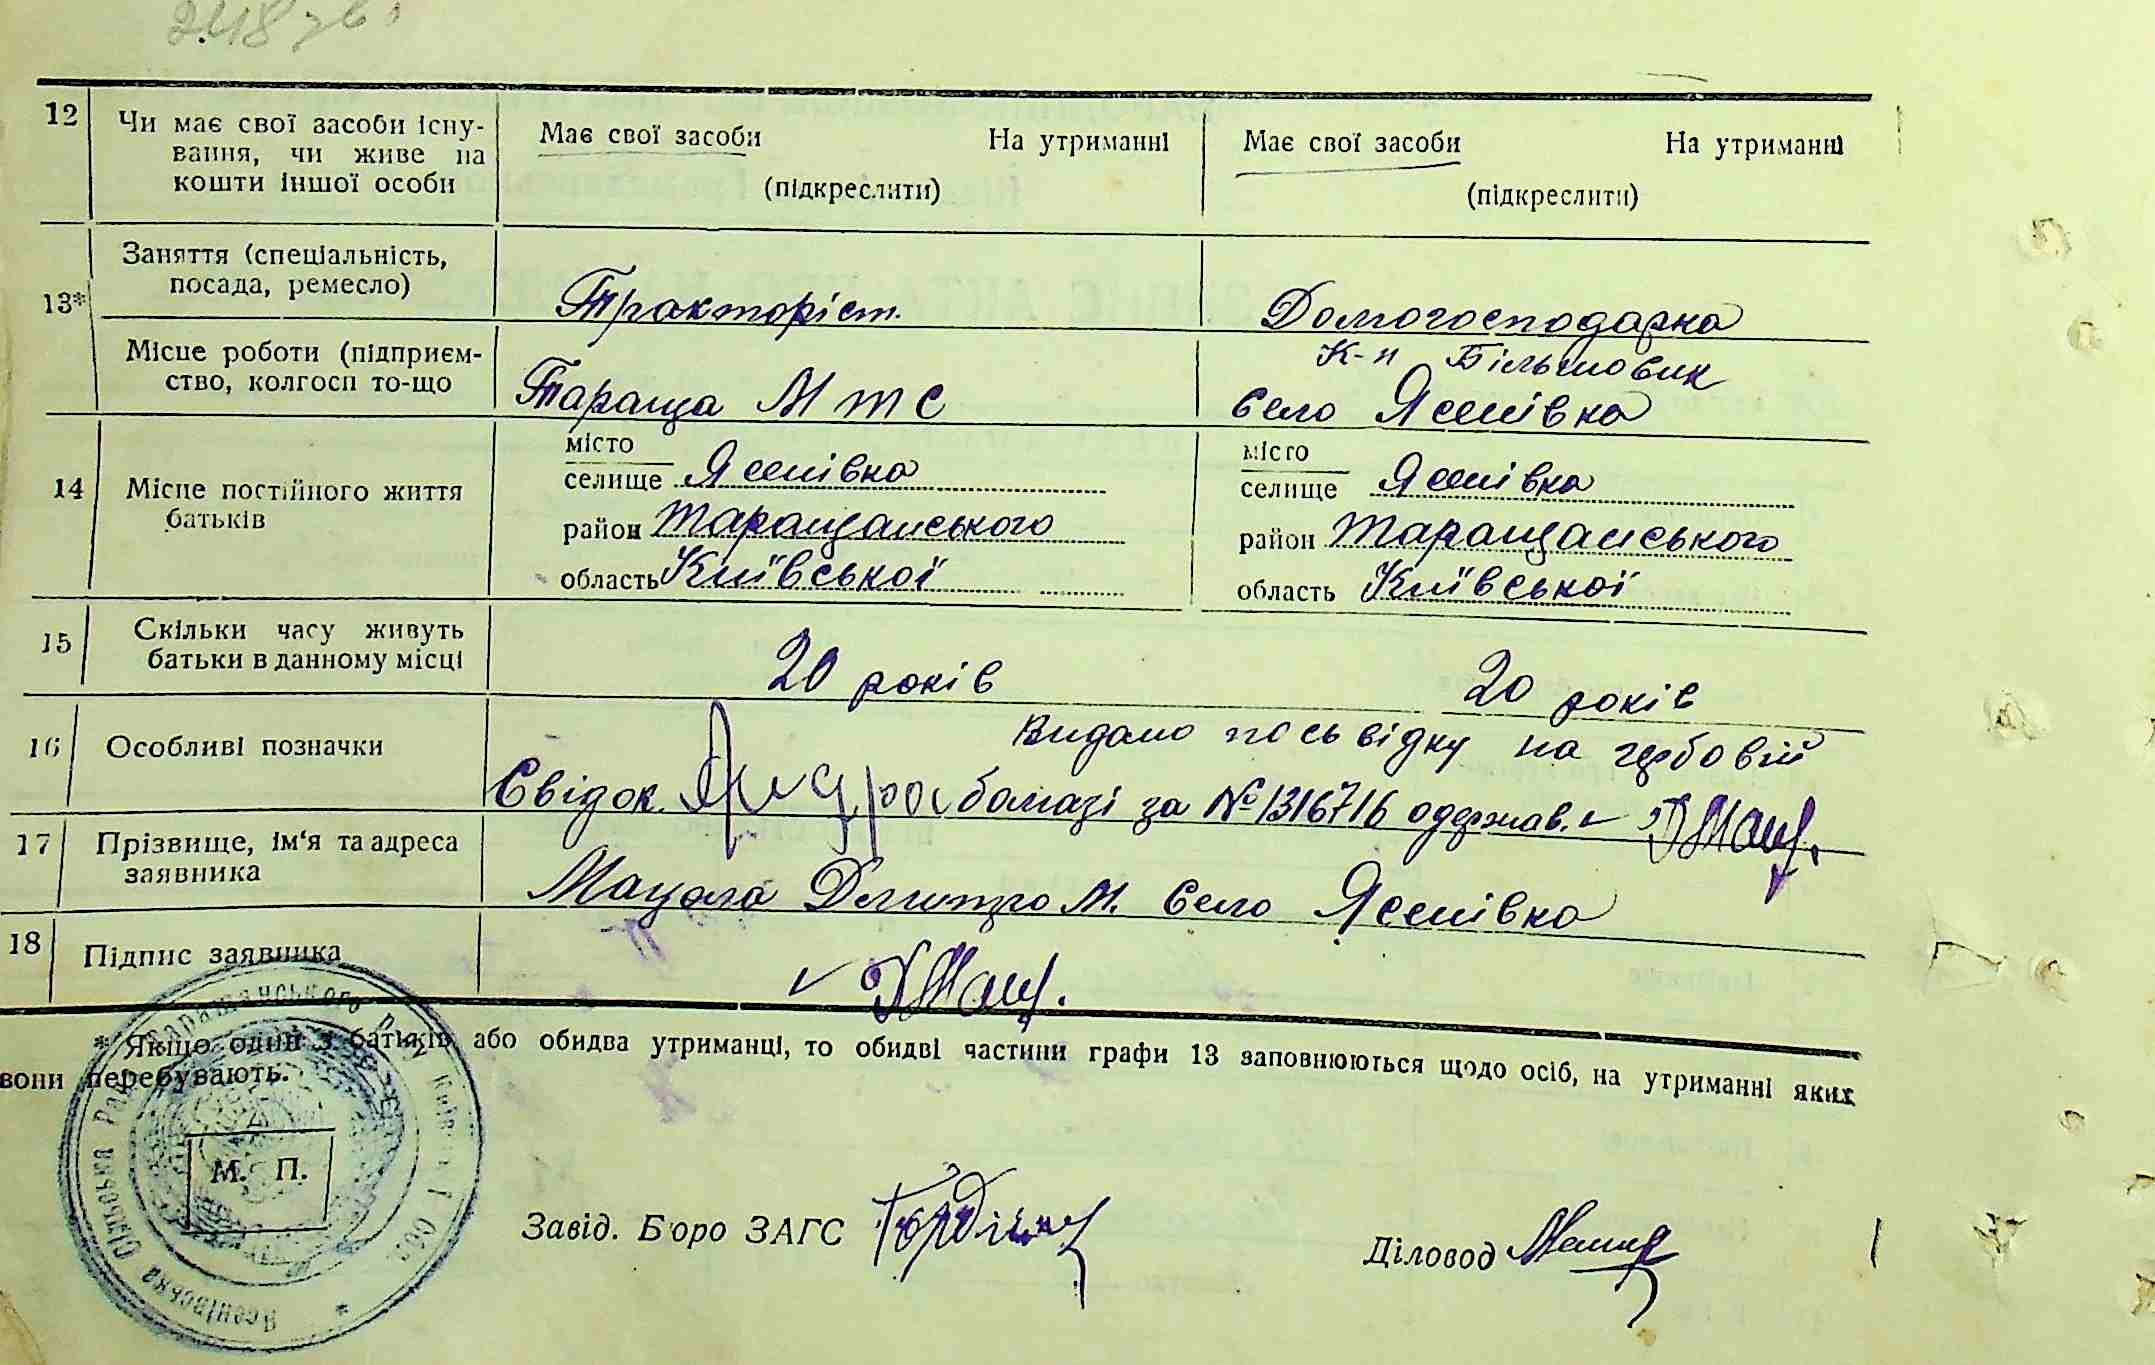 12 Чи має свої засоби існу-
вання, чи живе на
кошти іншої особи
Має свої засоби На утриманні
(підкреслити)
Має свої засоби На утриманні
(підкреслити)
13* Заняття (спеціальність,
посада, ремесло)
Тракторіст.
Домогосподарка
Місце роботи (підприєм-
ство, колгосп то-що
Тараща М Т С
К-п Більшовик
село Ясенівка
14 Місце постійного життя
батьків
місто
селище Ясенівка
район Таращанського
область Київської
місто
селище Ясенівка
район Таращанського
область Київської
15 Скільки часу живуть
батьки в данному місці
20 років
20 років
16 Особливі позначки
Видано посьвідку на гербовій
Свідок бомазі за № 1316716 оддержав.
17 Прізвище, ім'я та адреса
заявника
Мацола Дмитро М. село Ясенівка
18 Підпис заявника
* Якщо один з батьків або обидва утриманці, то обидві частини графи 13 заповнюються щодо осіб, на утриманні яких
вони перебувають.
Ясенівська Сільська Рада Таращанського р-ну Київської Обл.
М. П.
Завід. Бюро ЗАГС
Діловод